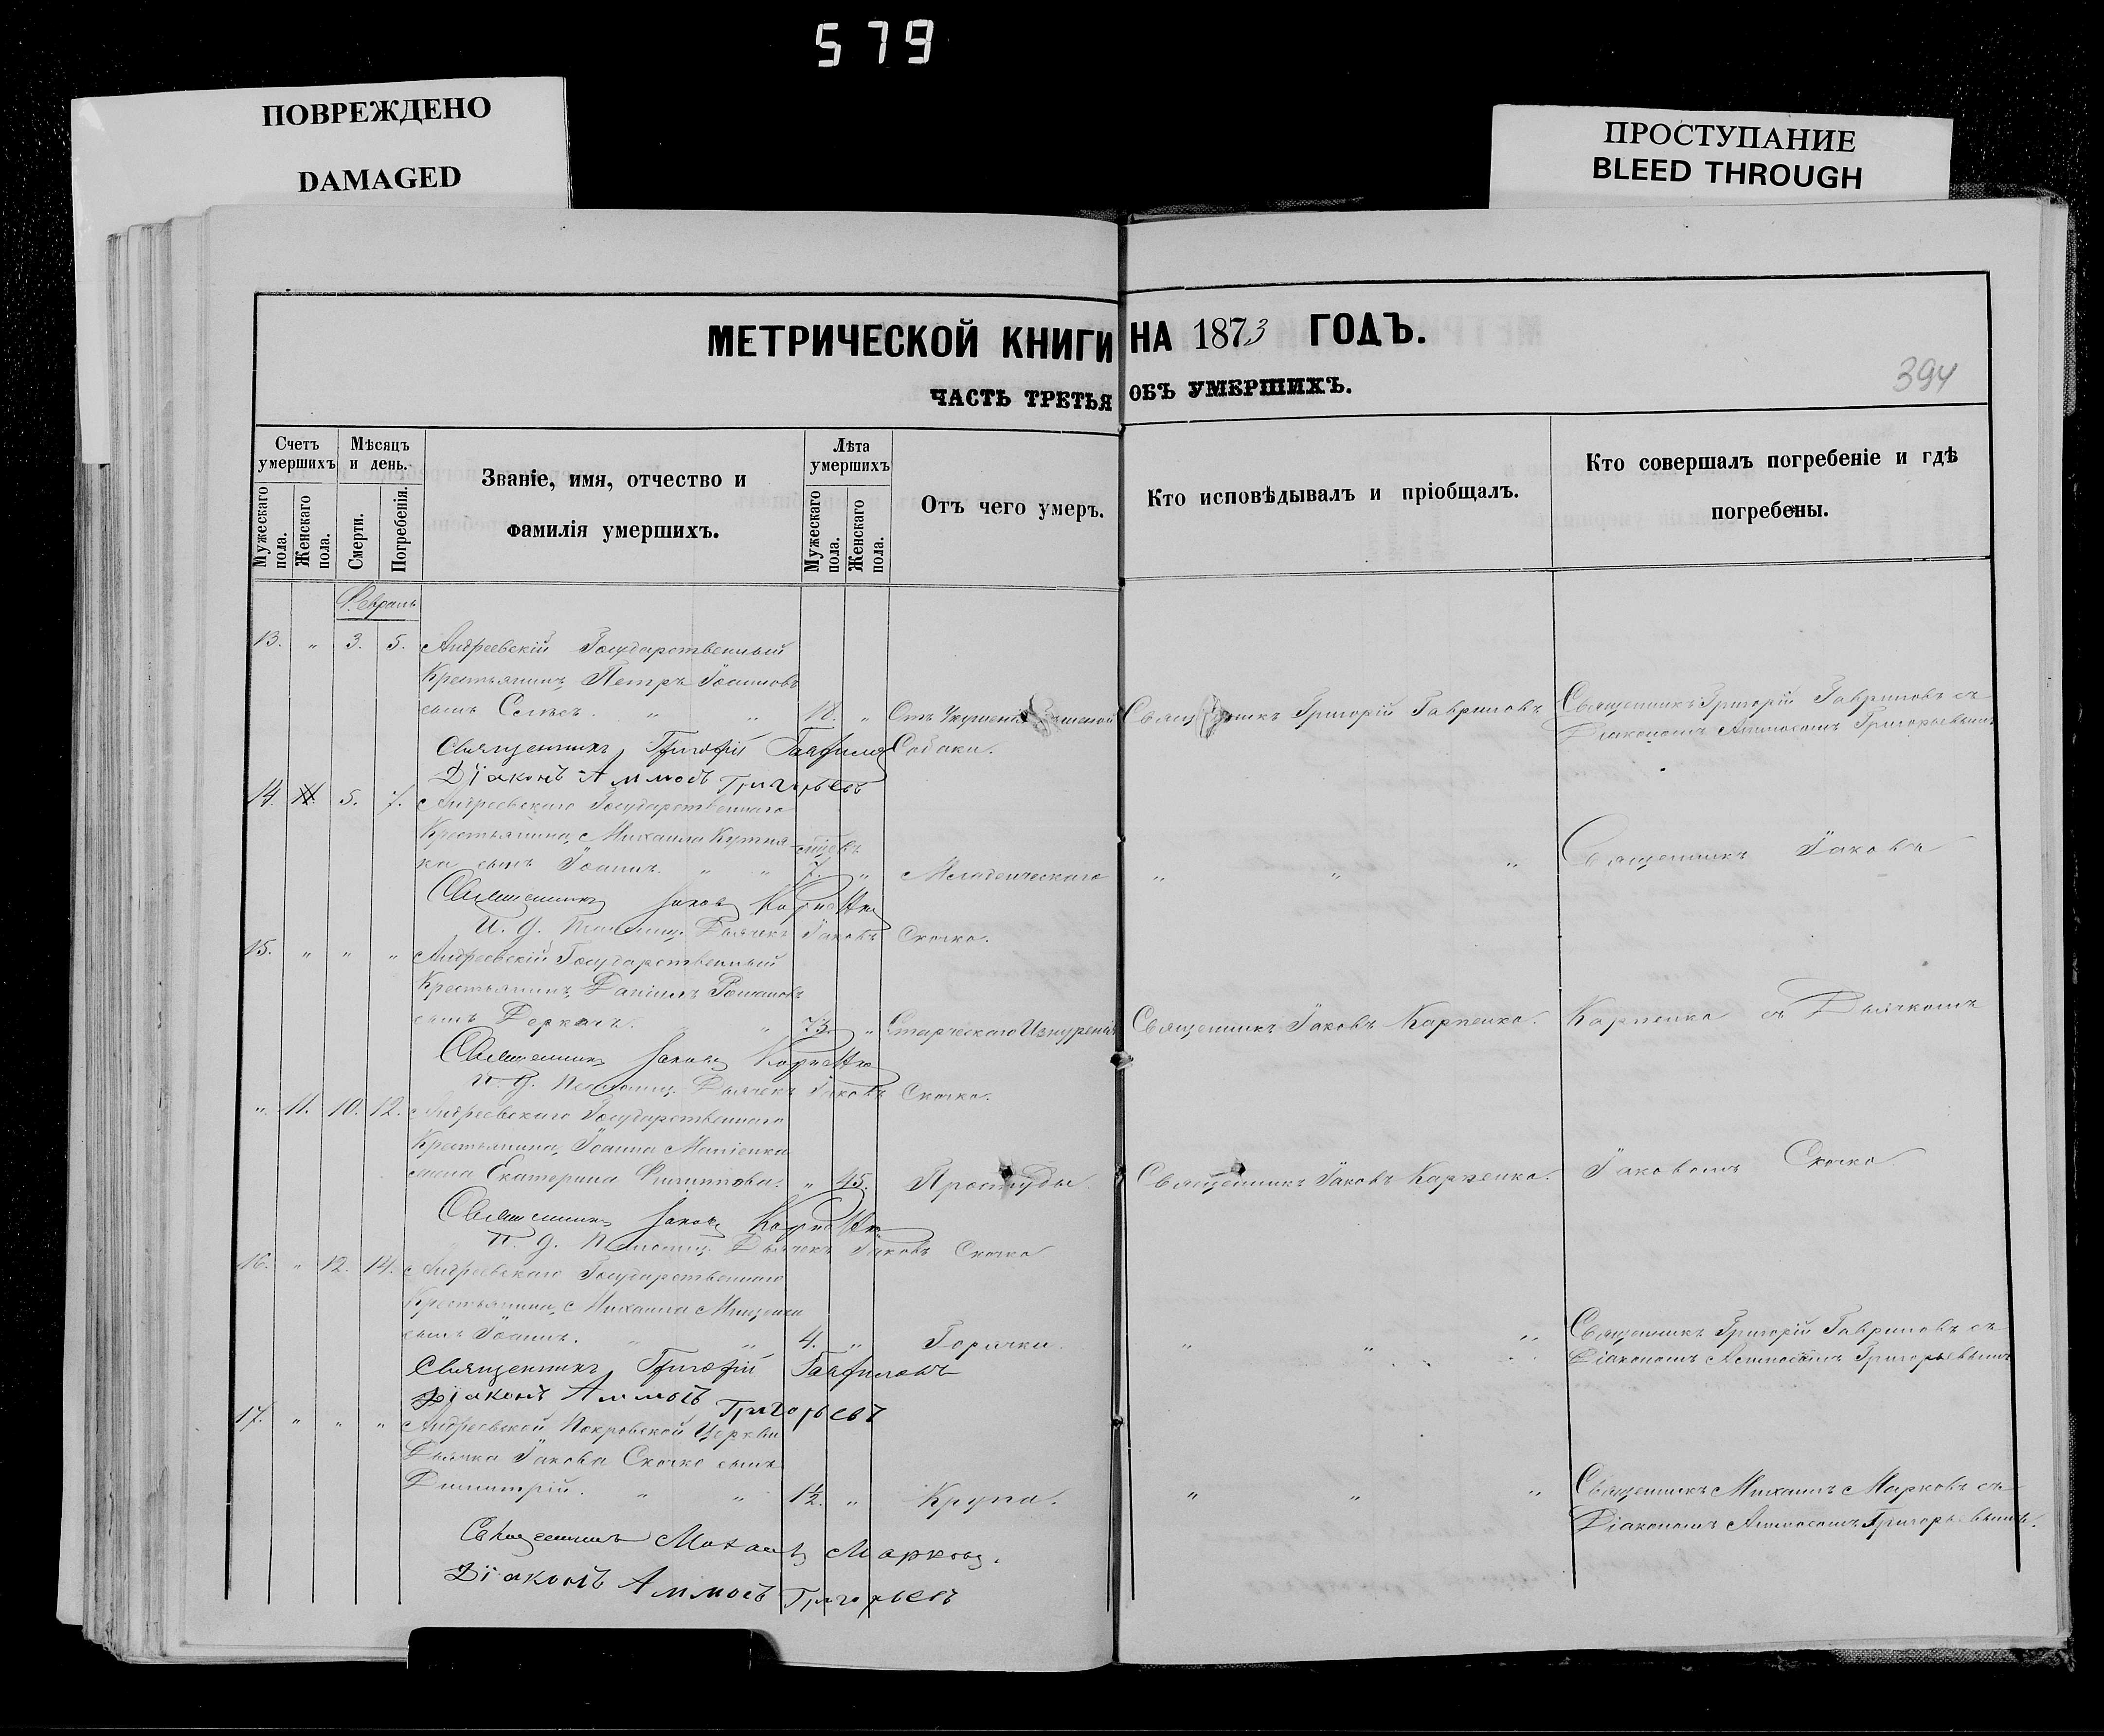 579
ПОВРЕЖДЕНО
DAMAGED
ПРОСТУПАНИЕ
BLEED THROUGH
МЕТРИЧЕСКОЙ КНИГИ НА 1873 ГОДЪ.
394
ЧАСТЬ ТРЕТЬЯ ОБЪ УМЕРШИХЪ.
Счетъ умершихъ
Мужескаго пола.
Женскаго пола.
Мѣсяцъ и день.
Смерти.
Погребенія.
Званіе, имя, отчество и
фамилія умершихъ.
Лѣта умершихъ
Мужескаго пола.
Женскаго пола.
Отъ чего умеръ.
Кто исповѣдывалъ и пріобщалъ.
Кто совершалъ погребеніе и гдѣ
погребены.
Февраль
13. " 3. 5. Андреевскій Государственный
Крестьянинъ, Петръ Іоанновъ
сынъ " " 18. " Отъ Священникъ Григорій Гавриловъ Священникъ Григорій Гавриловъ съ
Діакономъ Аммосомъ Григорьевымъ
Священникъ Григорій Собаки.
Діаконъ Аммосъ Григорьевъ
14. 5. 7. Андреевскаго Государственнаго
Крестьянина, Михаила
ка сынъ Іоаннъ. " " 7. " Младенческаго " " " Священникъ Іаковъ
Священникъ Іаковъ Карпенко
И. д. Дьячекъ Іаковъ Скочко.
15. " " " Андреевскій Государственный
Крестьянинъ, Даніилъ Романовъ
сынъ Деркачъ. " " 73. " Старческаго Изнуренія Священникъ Іаковъ Карпенко. Карпенко съ Дьячкомъ
Священникъ Іаковъ Карпенко
И. д. Дьячекъ Іаковъ Скочко.
" 11. 10. 12. Андреевскаго Государственнаго
Крестьянина, Іоанна
жена Екатерина Филиппова. " 45. Простуды. Священникъ Іаковъ Карпенко. Іаковомъ Скочко
Священникъ Іаковъ Карпенко
И. д. Дьячекъ Іаковъ Скочко
16. " 12. 14. Андреевскаго Государственнаго
Крестьянина, Михаила Мищенка
сынъ Іоаннъ. " " 4. " Горячки. " " " Священникъ Григорій Гавриловъ съ
Діакономъ Аммосомъ Григорьевымъ
Священникъ Григорій Гавриловъ
Діаконъ Аммосъ Григорьевъ
17. " " " Андреевской Покровской Церкви
Дьячка Іакова Скочко сынъ
Димитрій. " " 1½. " Крупа. " " " Священникъ Михаилъ Марковъ съ
Діакономъ Аммосомъ Григорьевымъ.
Священникъ Михаилъ Марковъ.
Діаконъ Аммосъ Григорьевъ